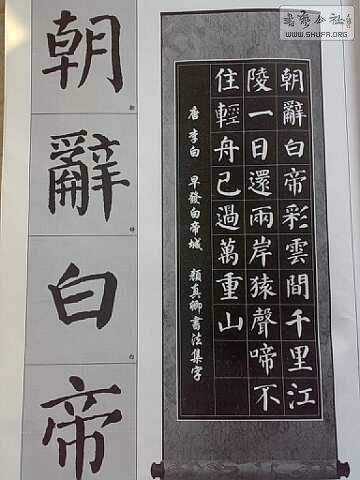 书艺公社
WWW.SHUFA.ORG
朝辭白帝彩雲間千里江
陵一日還兩岸猿聲啼不
住輕舟已過萬重山
唐 李白 早發白帝城 顏真卿書法集字
朝辭白帝